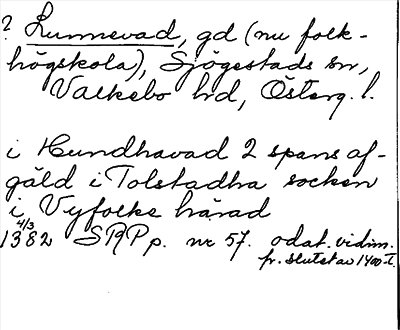 ? Lunnevad, gd (nu folk-
högskola), Sjögestads sn,
Valkebo hd, Österg. l.
i Hundhavad 2 spans af-
gäld i Tolstadha socken
i Vyfolke härad
4/3
1382 SRP p. nr 57. odat. vidim.
fr. slutet av 1400-t.